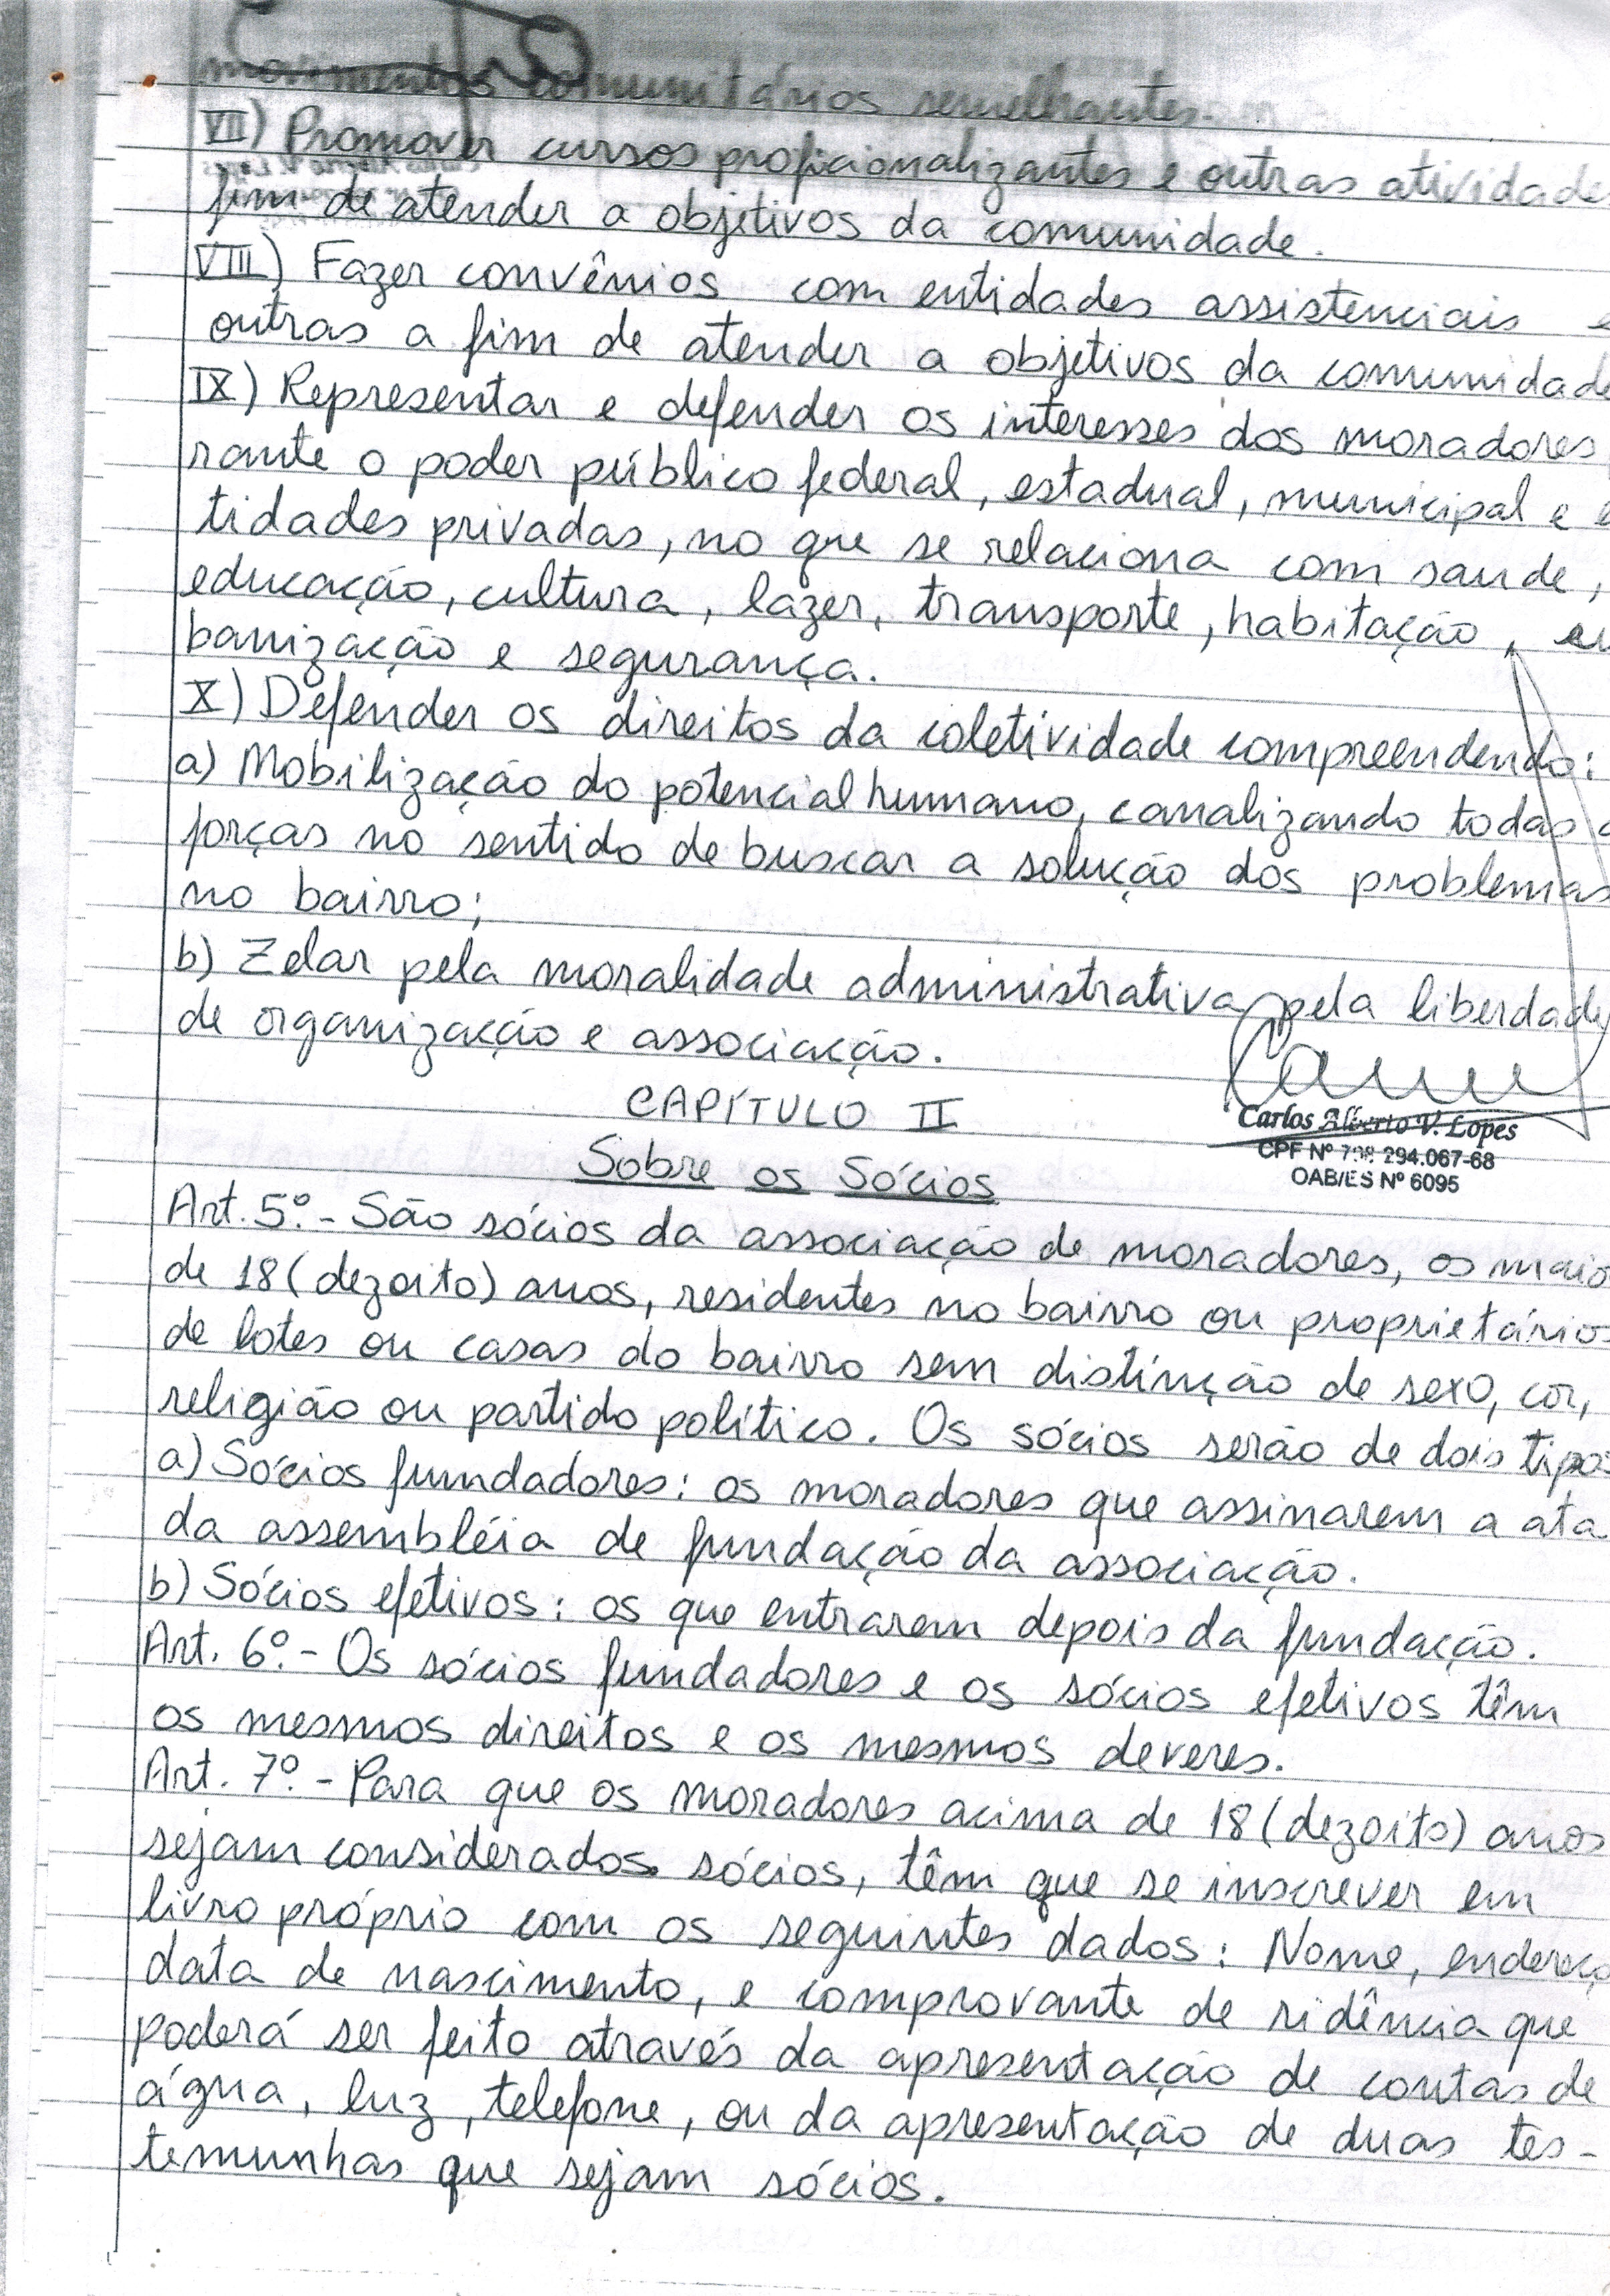 movimentos comunitários semelhantes.
VII) Promover cursos proficionalizantes e outras atividades
fim de atender a objetivos da comunidade.
VIII) Fazer convênios com entidades assistenciais e
outras a fim de atender a objetivos da comunidade
IX) Representar e defender os interesses dos moradores
rante o poder público federal, estadual, municipal e e
tidades privadas, no que se relaciona com saude,
educação, cultura, lazer, transporte, habitação, ur
banização e segurança.
X) Defender os direitos da coletividade compreendendo:
a) Mobilização do potencial humano, canalizando todas a
forças no sentido de buscar a solução dos problemas
no bairro;
b) Zelar pela moralidade administrativa pela liberdade
de organização e associação.
CAPÍTULO II
Carlos Alberto V. Lopes
CPF Nº 294.067-68
OAB/ES Nº 6095
Sobre os Sócios
Art. 5º - São sócios da associação de moradores, os maio
de 18 (dezoito) anos, residentes no bairro ou proprietários
de lotes ou casas do bairro sem distinção de sexo, cor,
religião ou partido político. Os sócios serão de dois tipos
a) Sócios fundadores: os moradores que assinarem a ata
da assembléia de fundação da associação.
b) Sócios efetivos: os que entrarem depois da fundação.
Art. 6º - Os sócios fundadores e os sócios efetivos têm
os mesmos direitos e os mesmos deveres.
Art. 7º - Para que os moradores acima de 18 (dezoito) anos
sejam considerados sócios, têm que se inscrever em
livro próprio com os seguintes dados: Nome, endereço
data de nascimento, e comprovante de ridência que
poderá ser feito através da apresentação de contas de
água, luz, telefone, ou da apresentação de duas tes-
temunhas que sejam sócios.